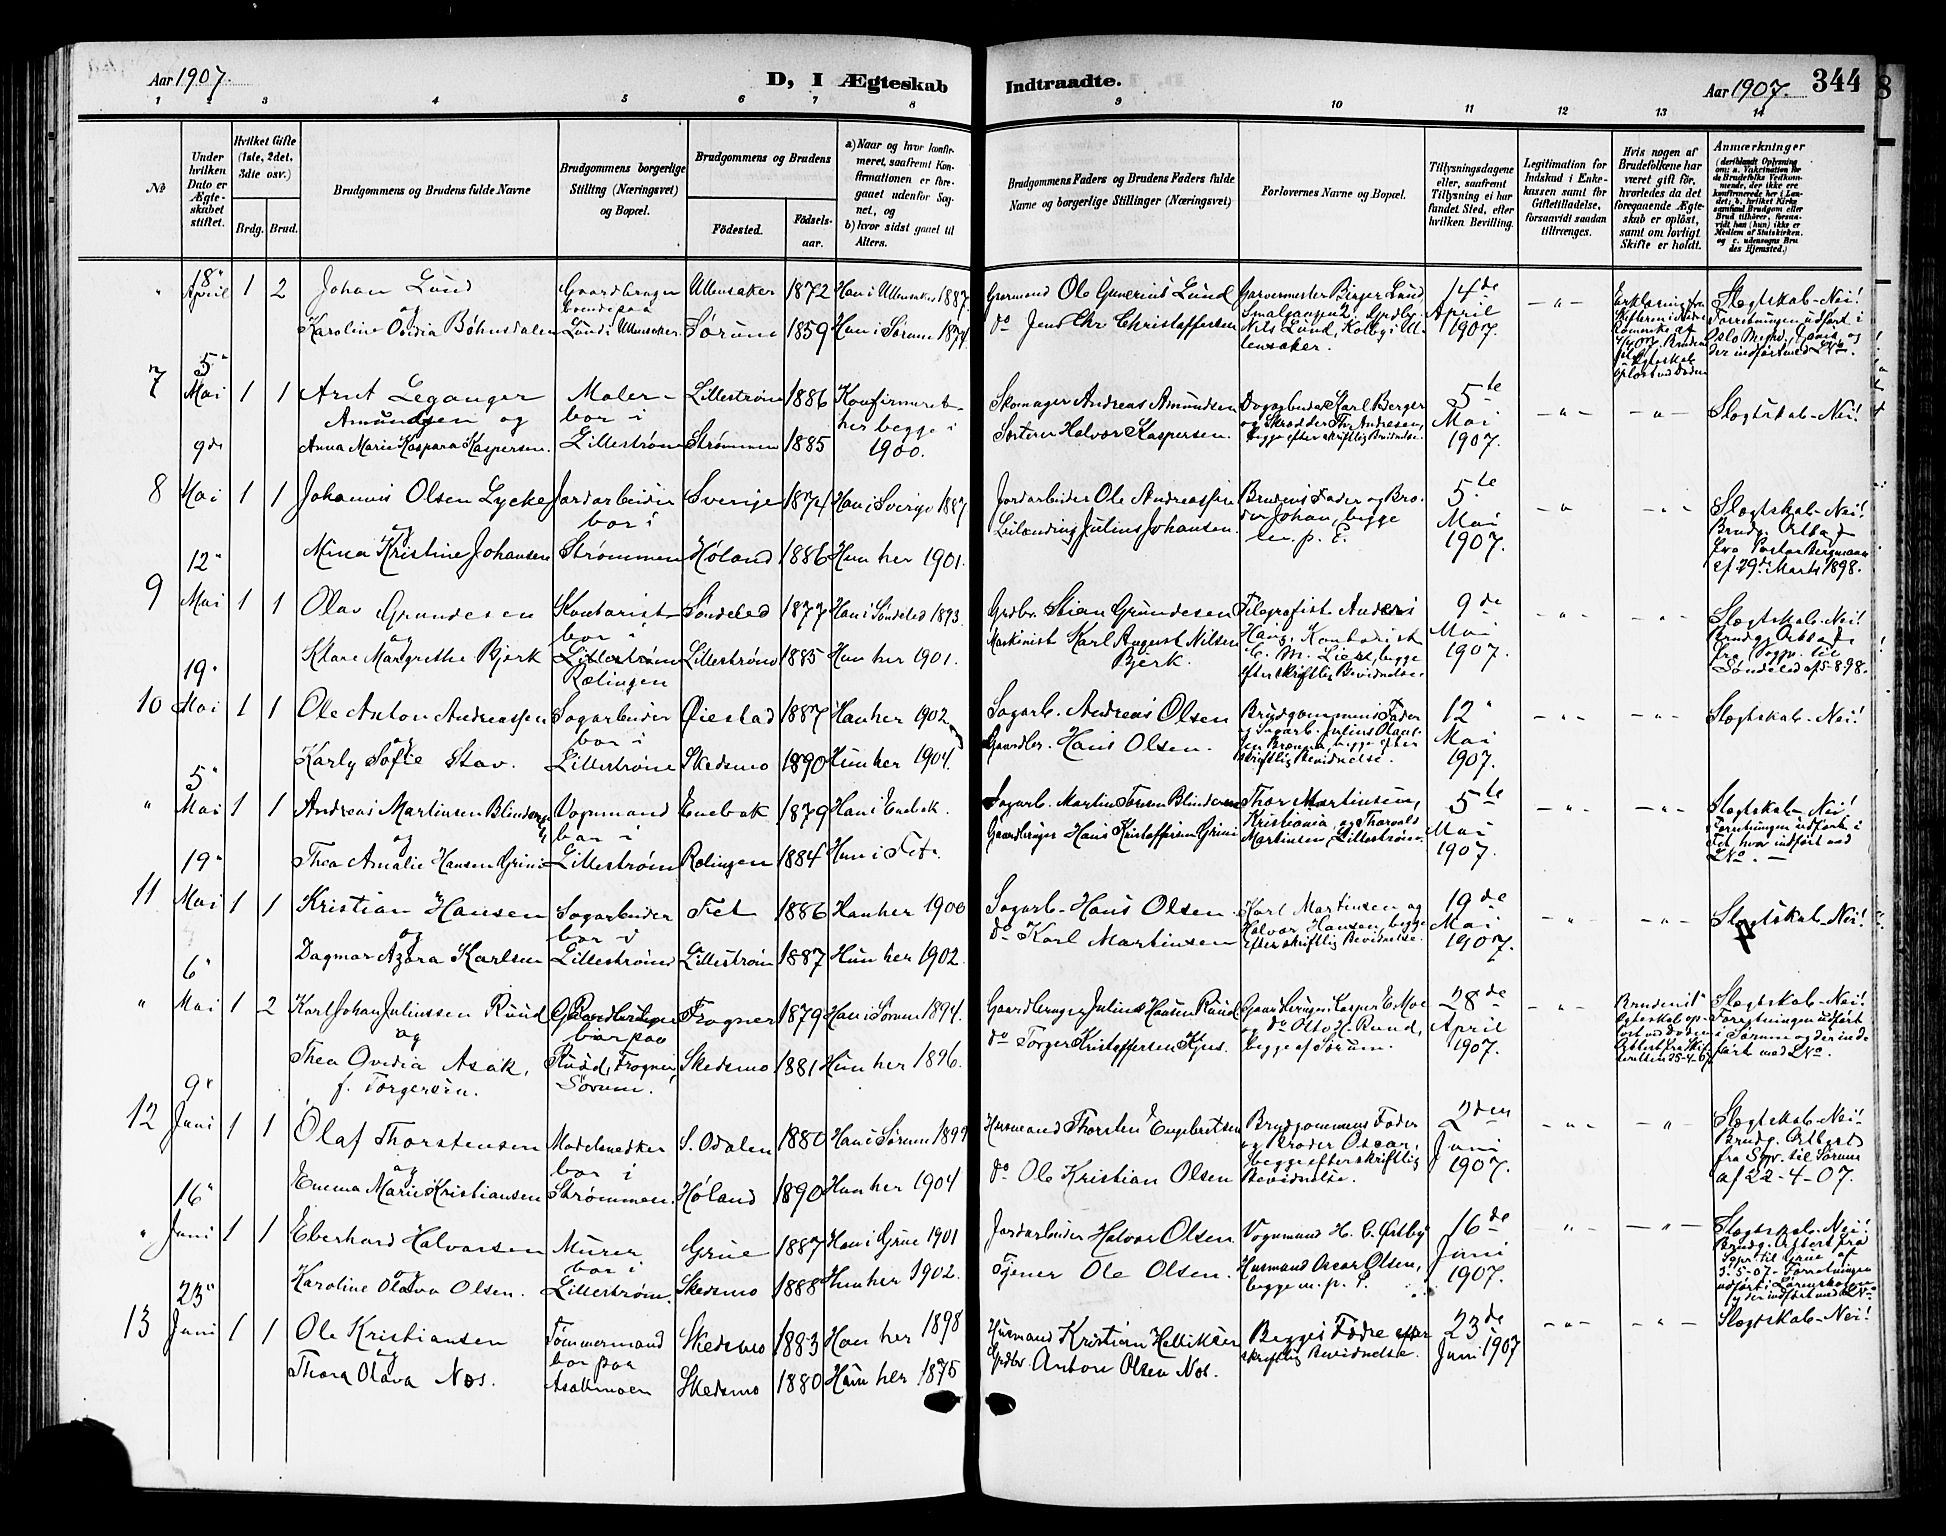 Aar 1907.
D, I Ægteskab
Indtraadte.
Aar 1907.
344
8
1 2 3 4 5 6 7 8 9 10 11 12 13 14
No
Under hvilken Dato er Ægteskabet stiftet.
Hvilket Gifte (1ste, 2det, 3die osv.)
Brdg. Brud.
Brudgommens og Brudens fulde Navne
Brudgommens borgerlige Stilling (Næringsvei) og Bopæl.
Brudgommens og Brudens
Födested.
Födselsaar.
a) Naar og hvor konfirmeret, saafremt Konfirmationen er foregaaet udenfor Sognet, og
b) hvor sidst gaaet til Alters.
Brudgommens Faders og Brudens Faders fulde Navne og borgerlige Stillinger (Næringsvei)
Forlovernes Navne og Bopæl.
Tillysningsdagene eller, saafremt Tillysning ei har fundet Sted, efter hvilken Bevilling.
Legitimation for Indskud i Enkekassen samt for Giftetilladelse, forsaavidt saadan tiltrænges.
Hvis nogen af Brudefolkene har været gift för, hvorledes da det foregaaende Ægteskab er oplöst, samt om lovligt Skifte er holdt.
Anmærkninger
(deriblandt Oplysning om: a. Vakcination for de Brudefolks Vedkommende, der ikke ere konfirmerede her i Landet; b. hvilket Kirkesamfund Brudgom eller Brud tilhörer, forsaavidt han (hun) ikke er Medlem af Statskirken, og c. udensogns Brudes Hjemsted.)
" 18" April 1 2 Johan Lund Gaardbruger Ullensaker 1872 Han i Ullensaker 1887. Garmand Ole Gunerius Lund Garvermester Birger Lund 14de - " - Erklæring fra Slegtskab - Nei!
og boende paa Smalgangen 2, Grdbr. April Skifteren i Nedre Forretningen udført i
Karoline Ovidia Bøhnsdalen Lund i Ullensaker. Sørum 1859 Hun i Sørum 1874. do Jens Chr Christoffersen Nils Lund, Kolby i Ullensaker. 1907. Romerike af
7 5" Mai 1 1 Arnt Leganger Maler - Lillestrøm 1886 Konfirmeret Skomager Andreas Amundsen Dagarbeider Karl Berger 5te - " - - " - Slegtskab - Nei!
Amundsen og bor i her begge i og Skrædder Thr. Andresen, Mai
Anna Marie Kaspara Kaspersen. Lillestrøm Strømmen 1885 1900. Sorterer Halvor Kaspersen. begge efter skriftlig Bevidnelse. 1907.
8 9de Mai 1 1 Johannis Olsen Lycke Jordarbeider Sverige 1874 Han i Sverige 1887. Jordarbeider Ole Andreassen Brudens Fader og Bro- 5te - " - " - Slegtskab - Nei!
og bor i Leilænding Julius Johansen. der Johan, begge Mai Brudg. Attest
Mina Kristine Johansen Strømmen Høland 1886 Hun her 1901. 1907. fra Pastor Bergman af 29de Marts 1898.
9 12" Mai 1 1 Olav Grundesen Kontorist Søndeled 1877 Han i Søndeled 1893. Grdbr. Stian Grundesen Telegrafist Anders 9de " - " - Slegtskab - Nei!
og bor i Maskinist Karl August Nilsen Haug, Kontorist Mai Brudg. Attest
Klara Margrethe Bjerk Lillestrøm Lillestrøm 1885 Hun her 1901. Bjerk. C. M. Lier, begge 1907. fra Sogpr. til
Rælingen efter skriftlig Bevidnelse. Søndeled af 5-8-98.
10 19" Mai 1 1 Ole Anton Andreassen Sagarbeider Øiestad 1887 Han her 1902. Sagarb. Andreas Olsen Brudgommens Fader 12" - " - - " - Slegtskab - Nei!
og bor i og Sagarb. Julius Mai
Karly Sofie Stav. Lillestrøm Skedsmo 1890 Hun her 1904. Gaardbr. Hans Olsen. begge efter skriftlig Bevidnelse. 1907.
" 5" Mai 1 1 Andreas Martinsen Blinderen Vognmand Enebak 1879 Han i Enebak. Sagarb. Martin Toresen Blinderen Thor Martinsen, 5te - " - - " - Slegtskab - Nei!
og bor i Gaardbruger Hans Kristoffersen Grini Kristiania, og Thorvald Mai Forretningen udført i
Thea Amalie Hansen Grini Lillestrøm Rælingen 1884 Hun i Fet. Martinsen, Lillestrøm. 1907. Fet, hvor indført med LNo. -
11 19" Mai 1 1 Kristian Hansen Sagarbeider Fet 1886 Han her 1900 Sagarb. Hans Olsen. Karl Martinsen og 19de - " - - " - Slegtskab - Nei!
og bor i do Karl Martinsen Halvor Hansen, begge Mai
Dagmar Azora Karlsen Lillestrøm Lillestrøm 1887 Hun her 1902. efter skriftlig Bevidnelse. 1907.
" 6" Mai 1 2 Karl Johan Juliussen Ruud Gaardbruger Frogner 1879 Han i Sørum 1894. Gaardbruger Julius Hansen Ruud Gaardbruger Kasper E. Moe 28de - " - Brudens 1ste Slegtskab - Nei!
og bor paa og do Otto H. Ruud, April Ægteskab op- Forretningen udført
Thea Ovidia Asak, Ruud, Frogner, Skedsmo 1881 Hun her 1896. do Torger Kristoffersen Kjus. begge af Sørum. 1907. løst ved Døden i Sørum og der ind-
f. Torgersen. Sørum. Attest fra Skifteretten 25-4-07 ført med LNo.
12 9" Juni 1 1 Olaf Thorstensen Modelsnedker S. Odalen 1880 Han i Sørum 1899 Husmand Thorsten Engebretsen Brudgommens Fader 2den - " - " - Slegtskab - Nei!
og bor i og Broder Oscar, Juni Brudg. Attest
Emma Marie Kristiansen Strømmen. Høland 1890 Hun her 1904 do. Ole Kristian Olsen begge efter skriftlig Bevidnelse. 1907. fra Spr. til Sørum af 22-4-07.
" 16" Juni 1 1 Eberhard Halvorsen Murer Grue 1887 Han i Grue 1901 Jordarbeider Halvor Olsen. Vognmand H. C. Østby 16de " - " - Slegtskab - Nei!
og bor i Husmand Oscar Olsen, Juni Brudg. Attest fra
Karoline Olava Olsen. Lillestrøm. Skedsmo 1888 Hun her 1902. Tjener Ole Olsen. begge m. p. P. 1907. Sgpr. til Grue af 3-5-07 - Forretningen
udført i Lørenskogen og der indført med LNo
13 23" Juni 1 1 Ole Kristiansen Tømmermand Skedsmo 1883 Han her 1898 Husmand Kristian Helliksen Begges Fædre efter 23de - " - - " - Slegtskab - Nei!
og bor paa skriftlig Bevidnelse. Juni 1907
Thora Olava Nos. Asakmoen Skedsmo 1880 Hun her 1875 Grdbr. Anton Olsen Nos.